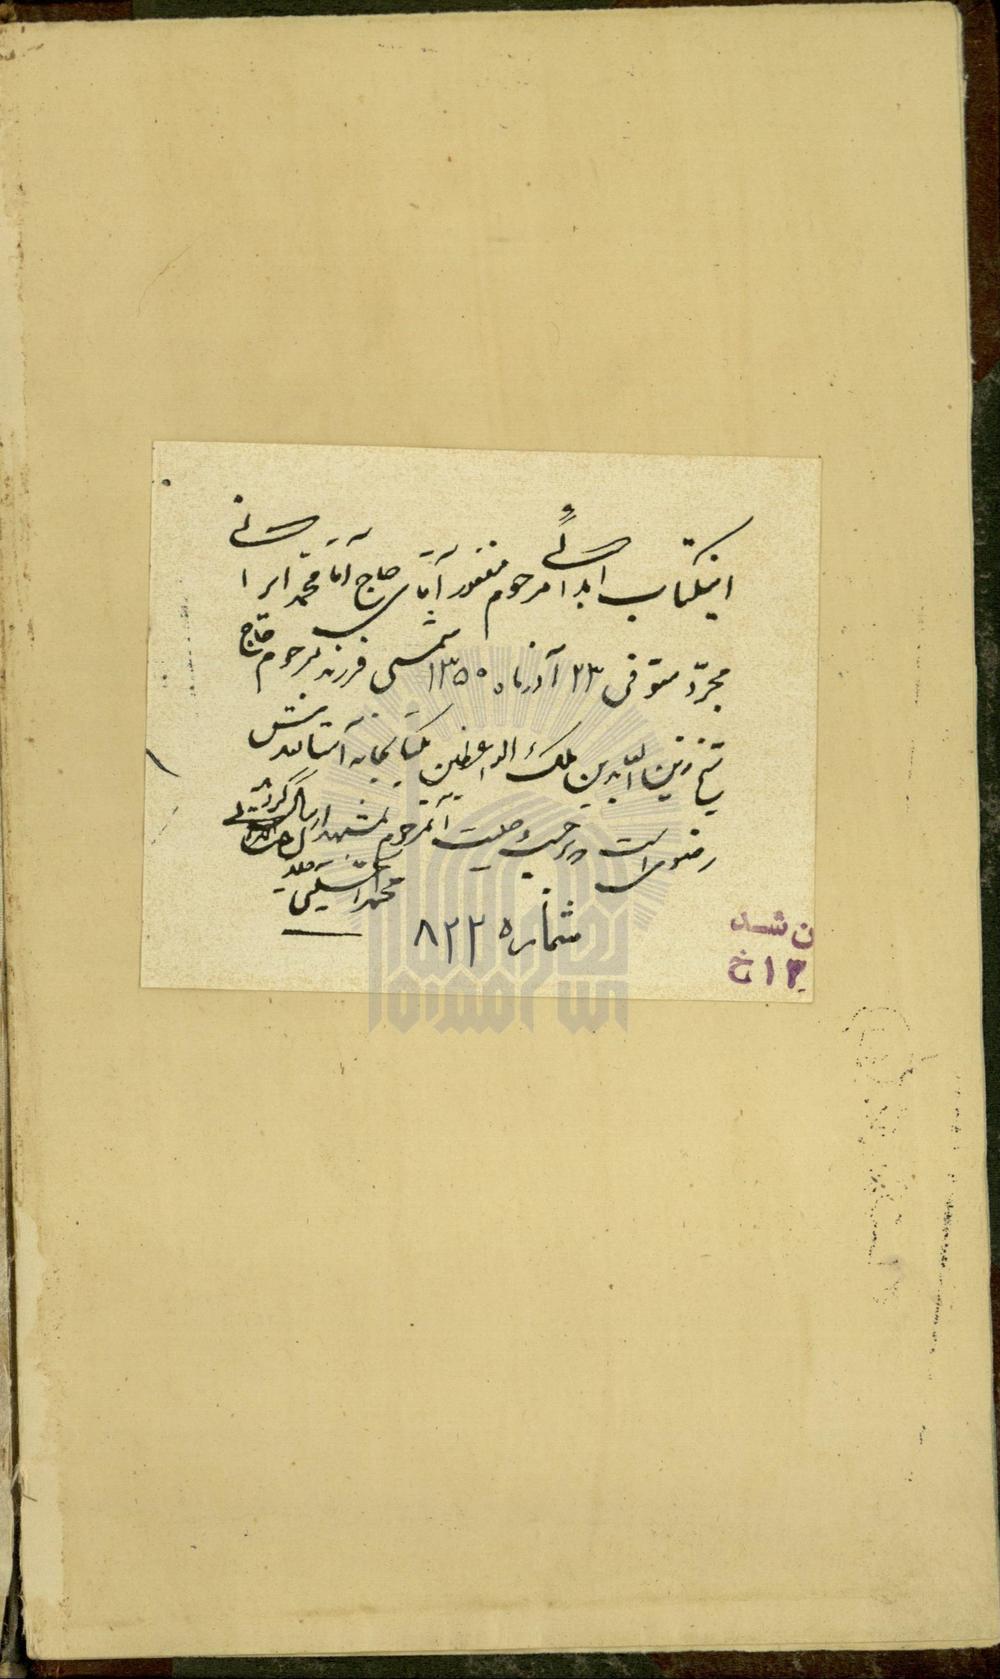 اینکتاب اهدائی مرحوم مغفور آقای حاج آقا محمد ایرانی
مجرّد متوفی ۲۳ آذرماه ۱۳۵۰ شمسی فرزند مرحوم حاج
شیخ زین العابدین ملک الواعظین بکتابخانه آستانقدس
رضوی است و برحسب وصیت آنمرحوم بمشهد ارسال گردید
محمد
شماره ۸۲۲
ن شد
۱۳ خ